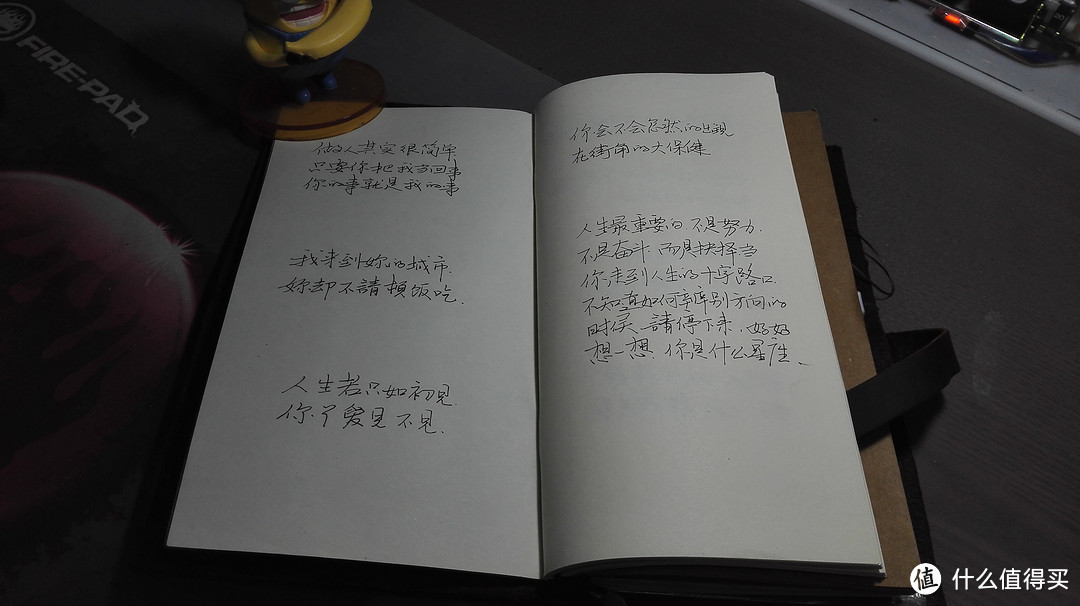 FIRE-PAD
做人其实很简单
只要你把我当回事
你的事就是我的事
我来到妳的城市
妳却不請頓饭吃
人生若只如初见
你丫爱见不见
你会不会忽然的出现
在街角的大保健
人生最重要的不是努力
不是奋斗 而是抉择当
你来到人生的十字路口
不知道如何辨别方向的
时候 請停下来 好好
想一想 你是什么星座
值 什么值得买